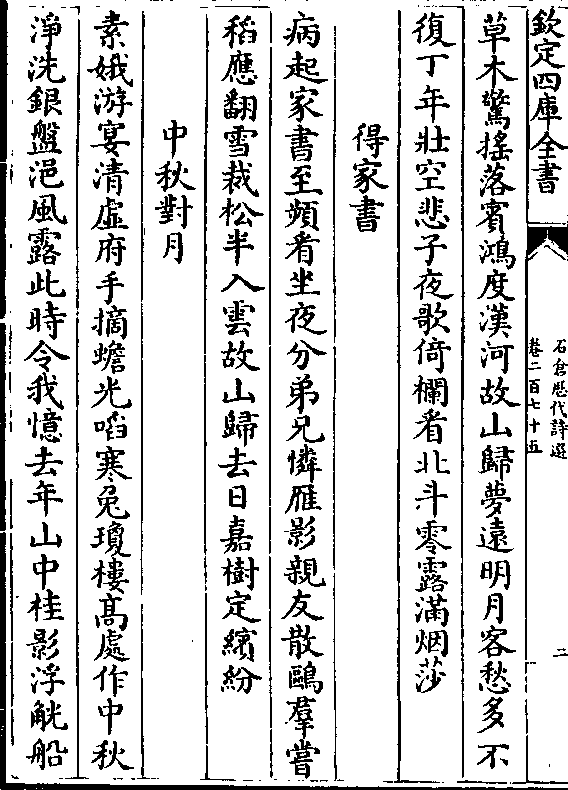 欽定四庫全書
石倉歷代詩選
卷二百七十五
二
草木驚搖落賓鴻度漢河故山歸夢遠明月客愁多不
復丁年壯空悲子夜歌倚欄看北斗零露滿烟莎
得家書
病起家書至頻看坐夜分弟兄憐雁影親友散鷗羣嘗
稻應翻雪栽松半入雲故山歸去日嘉樹定繽紛
中秋對月
素娥游宴清虛府手摘蟾光啗寒兔瓊樓高處作中秋
淨洗銀盤浥風露此時令我憶去年山中桂影浮觥船